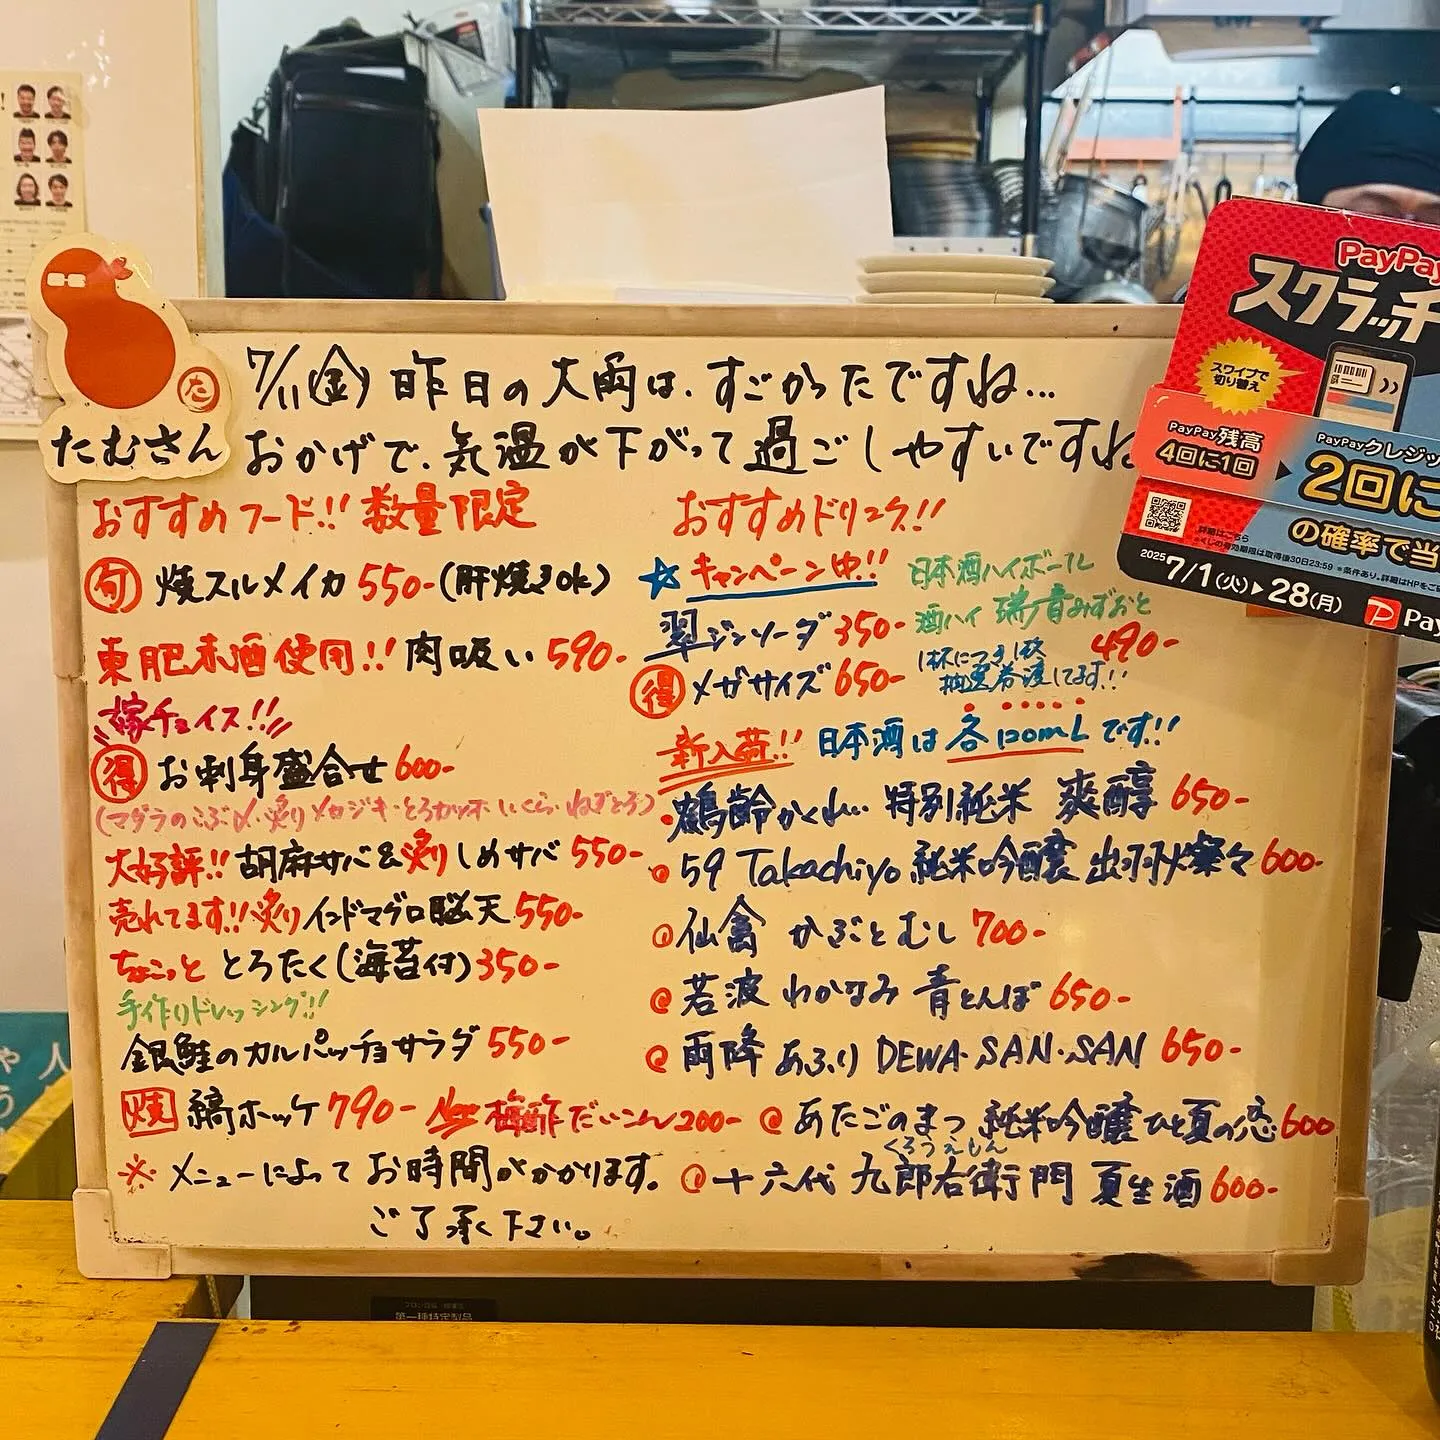 たむさん
た
7/11(金) 昨日の大雨は、すごかったですね…
おかげで、気温が下がって過ごしやすいですね
おすすめフード!! 数量限定
旬 焼スルメイカ 550- (肝焼きok)
東肥赤酒使用!! 肉吸い 590-
嫁チョイス!!
得 お刺身盛合せ 600-
(マダラのこぶ〆・炙りメカジキ・とろカツオ・いくら・ねぎとろ)
大好評!! 胡麻サバ&炙りしめサバ 550-
売れてます!! 炙りインドマグロ脳天 550-
ちょこっと とろたく(海苔付) 350-
手作りドレッシング!!
銀鮭のカルパッチョサラダ 550-
焼 縞ホッケ 790- New 梅酢だいこん 200-
※メニューによってお時間がかかります。
ご了承下さい。
おすすめドリンク!!
☆キャンペーン中!!
翠ジンソーダ 350-
得 メガサイズ 650-
日本酒ハイボール
酒ハイ 瑞音みずおと
490-
1杯につき1枚
抽選券渡してます!!
新入荷!! 日本酒は各120mLです!!
・鶴齢かくれい 特別純米 爽醇 650-
・59 Takachiyo 純米吟醸 出羽燦々 600-
・仙禽 かぶとむし 700-
・若波 わかなみ 青とんぼ 650-
・雨降 あふり DEWA・SAN・SAN 650-
・あたごのまつ 純米吟醸 ひと夏の恋 600
くろうえもん
・十六代 九郎右衛門 夏生酒 600-
PayPay
スクラッチ
スワイプで
切り替え
PayPay残高
4回に1回
PayPayクレジッ
2回に
の確率で当
詳細はこちら
2025 7/1(火)▶28(月)
Pay
第一種特定製品